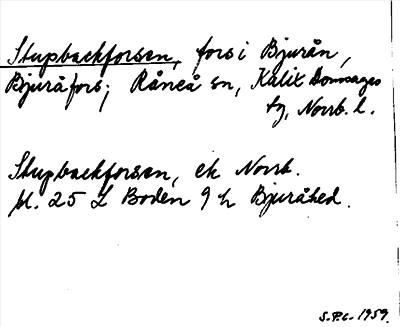 Stupbackforsen, fors i Bjurån,
Bjuråfors; Råneå sn, Kalix Domsagas
tg, Norrb. l.
Stupbackforsen, ek Norrb.
bl. 25 L Boden 9 h Bjuråhed.
S.P.L. 1959.